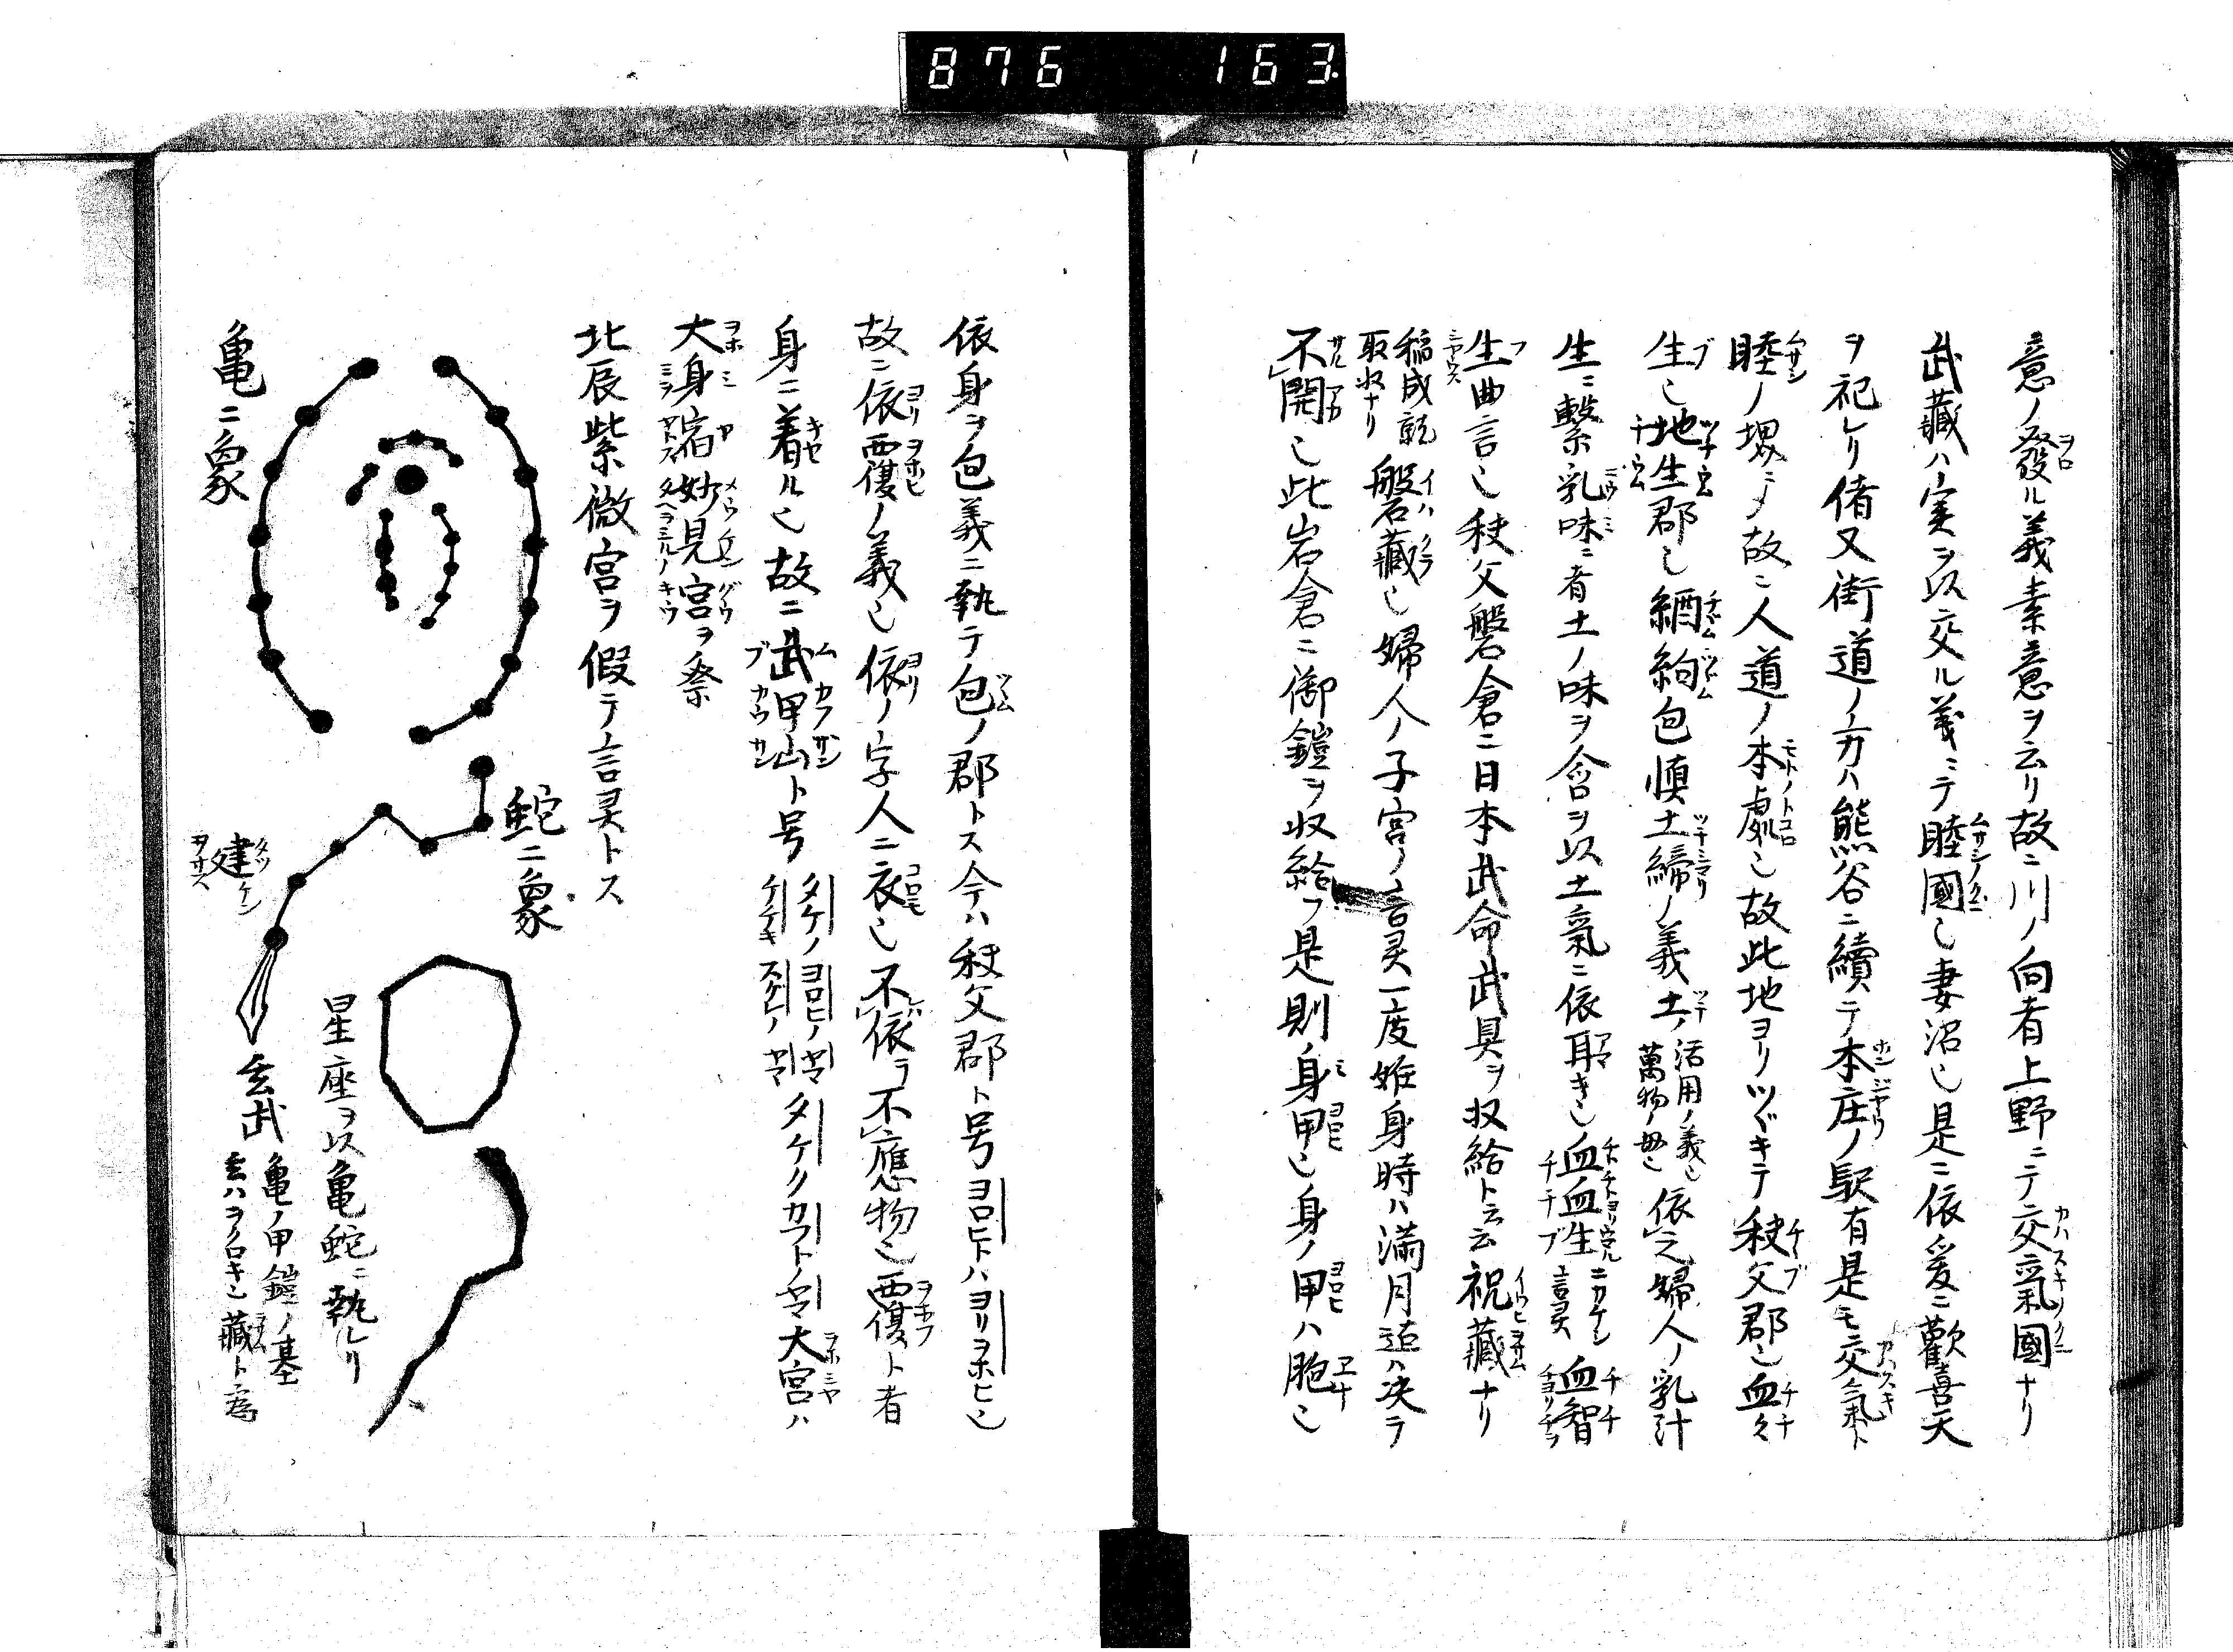 876 163.
意ノ發ル義素意ヲ云リ故ニ川ノ向者上野ニテ交氣國ナリ
武藏ハ実ヲ以交ル義ニテ睦國也妻沼也是ニ依爰ニ歡喜天
ヲ祀レリ偖又街道ノ方ハ熊谷ニ續テ本庄ノ駅有是モ交氣ト
睦ノ堺ニメ故ニ人道ノ本處也故此地ヨリツヾキテ秩父郡也血々
生也地生郡也 包慎土締ノ義土ノ活用ノ義也萬物ノ母也依之婦人ノ乳汁
生ニ繫乳味ニ者土ノ味ヲ含ヲ以土氣ニ依耳き也血血生ニカケシ言灵血智
生曲言也秩父磐倉ニ日本武命武具ヲ収給ト云云祝藏ナリ
稲成就取収ナリ磐藏也婦人ノ子宮ノ言灵一度姙身時ハ満月迠ハ决ラ
不開也此岩倉ニ御鎧ヲ収給フ是則身甲也身ノ甲ハ胞也
依身ヲ包義ニ執テ包ノ郡トス今ハ秩父郡ト号ヨロヒトハヨリヲホヒ也
故ニ依覆ノ義也依ノ字人ニ衣也不依ラ不應物也覆ト者
身ニ着ル也故ニ武甲山ト号タケノヨロヒノヤマ タケノカブトヤマ大宮ハ
大身宿妙見宮ヲ祭
北辰紫微宮ヲ假テ言灵トス
亀ニ象
蛇ニ象
建
星座ヲ以亀蛇ニ執レリ
玄武 亀ノ甲鎧ノ基
玄ハヲクロキ也藏ト為